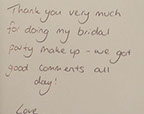 Thank you very much
for doing my bridal
party make up - we got
good comments all
day!
Love